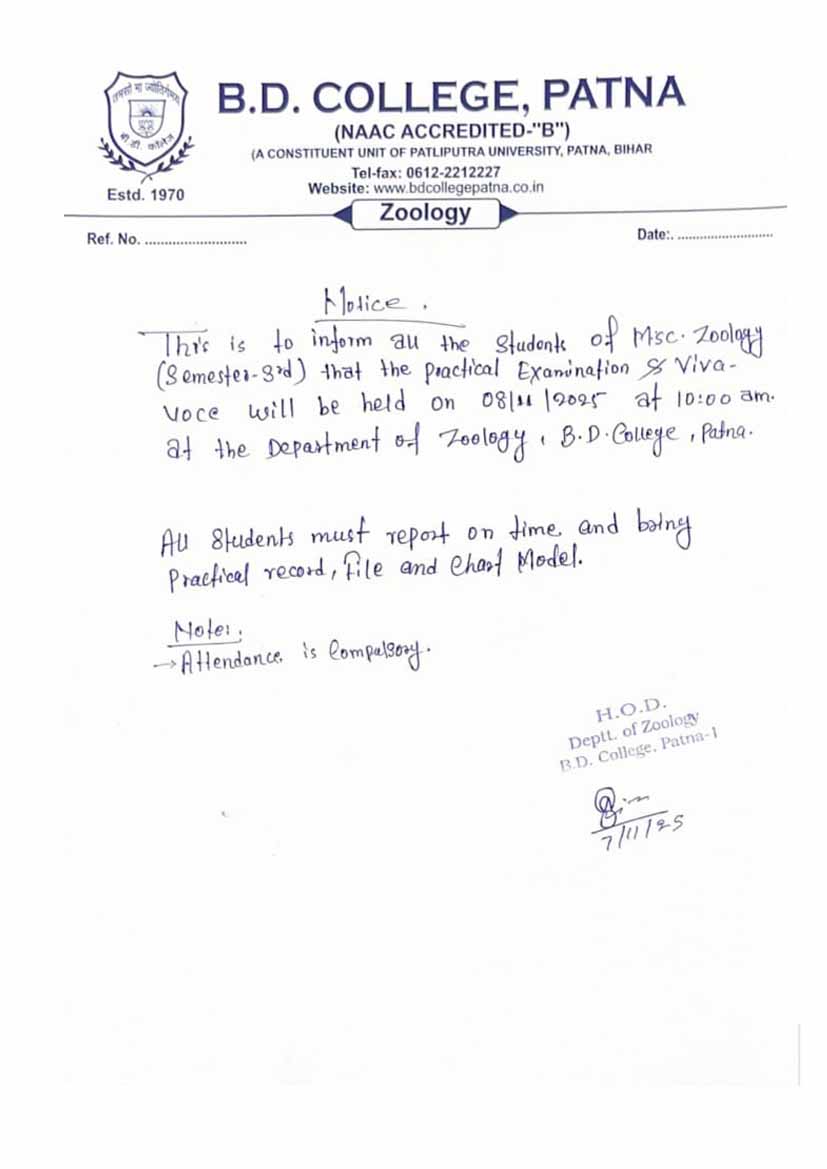 तमसो मा ज्योतिर्गमय
बी.डी. कॉलेज
Estd. 1970
B.D. COLLEGE, PATNA
(NAAC ACCREDITED-"B")
(A CONSTITUENT UNIT OF PATLIPUTRA UNIVERSITY, PATNA, BIHAR
Tel-fax: 0612-2212227
Website: www.bdcollegepatna.co.in
Zoology
Ref. No. ...........................
Date:. ..........................
Notice.
This is to inform all the Students of Msc. Zoology
(Semester-3rd) that the practical Examination & Viva-
voce will be held on 08/11/2025 at 10:00 am.
at the Department of Zoology, B.D. College, Patna.
All Students must report on time and bring
Practical record, File and Chart Model.
Note:.
→ Attendance is Compulsory.
H.O.D.
Deptt. of Zoology
B.D. College, Patna-1
7/11/25